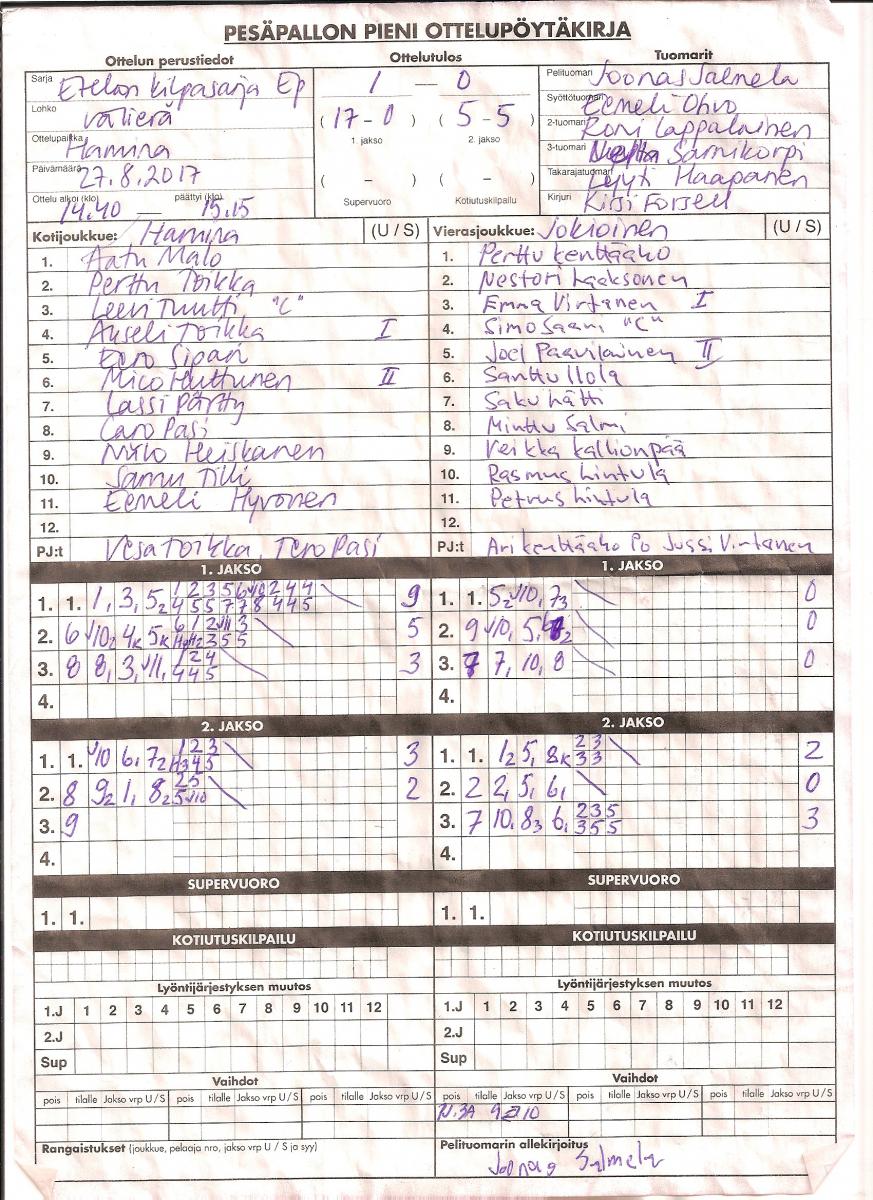 PESÄPALLON PIENI OTTELUPÖYTÄKIRJA
Ottelun perustiedot
Ottelutulos
Tuomarit
Sarja Etelän kilpasarja Ep
Lohko välierä
Ottelupaikka Hamina
Päivämäärä 27.8.2017
Ottelu alkoi (klo) 14.40 — päättyi (klo) 15.15
1 — 0
( 17 – 0 ) ( 5 – 5 )
1. jakso 2. jakso
( – ) ( – )
Supervuoro Kotiutuskilpailu
Pelituomari Joonas Salmela
Syöttötuomari Eemeli Ohvo
2-tuomari Roni Lappalainen
3-tuomari Samikorpi
Takarajatuomari Lyyti Haapanen
Kirjuri Kirsi Forsell
Kotijoukkue: Hamina (U / S)
1. Aatu Malo
2. Perttu Toikka
3. Leevi Tuutti "C"
4. Anseli Toikka I
5. Eero Sipari
6. Mico Huttunen II
7. Lassi Pärtty
8. Caro Pasi
9. Milo Heiskanen
10. Samu Tilli
11. Eemeli Hyvönen
12.
PJ:t Vesa Toikka, Tero Pasi
Vierasjoukkue: Jokioinen (U / S)
1. Perttu Kenttääho
2. Nestori Laaksonen
3. Emma Virtanen I
4. Simo Saari "C"
5. Joel Paavilainen II
6. Santtu Ilola
7. Saku Lätti
8. Minttu Salmi
9. Veikka Kallionpää
10. Rasmus Lintula
11. Petrus Lintula
12.
PJ:t Ari Kenttääho Po Jussi Virtanen
1. JAKSO
1. 1. 1, 3, 5₂ 9
2. 6 5
3. 8 8, 3, 3
4.
1. JAKSO
1. 1. 5₂ 10, 7₃ 0
2. 9 10, 5, 0
3. 7 7, 10, 8 0
4.
2. JAKSO
1. 1. 10 6, 7₂ 3
2. 8 9₂ 1, 8₂ 2
3. 9
4.
2. JAKSO
1. 1. 1₂ 5, 8k 2
2. 2 2, 5, 6, 0
3. 7 10, 8₃ 6, 3
4.
SUPERVUORO
1. 1.
SUPERVUORO
1. 1.
KOTIUTUSKILPAILU
KOTIUTUSKILPAILU
Lyöntijärjestyksen muutos
1.J 1 2 3 4 5 6 7 8 9 10 11 12
2.J
Sup
Lyöntijärjestyksen muutos
1.J 1 2 3 4 5 6 7 8 9 10 11 12
2.J
Sup
Vaihdot
pois tilalle Jakso vrp U / S pois tilalle Jakso vrp U / S pois tilalle Jakso vrp U / S
Vaihdot
pois tilalle Jakso vrp U / S pois tilalle Jakso vrp U / S pois tilalle Jakso vrp U / S
Rangaistukset (joukkue, pelaaja nro, jakso vrp U / S ja syy)
Pelituomarin allekirjoitus
Joonas Salmela